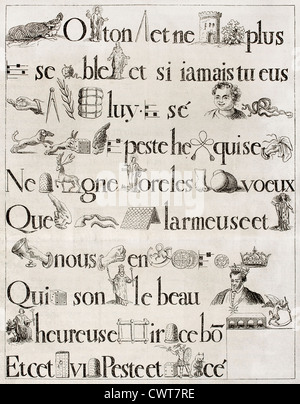 O ton et ne plus
se ble et si iamais tu eus
luy sé
peste he quise
Ne gne ore les voeux
Que la rmeuse et
nous en
Qui son le beau
heureuse ir ce bō
Et cet vi Peste et cé
alamy
Image ID: CWT7RE
www.alamy.com